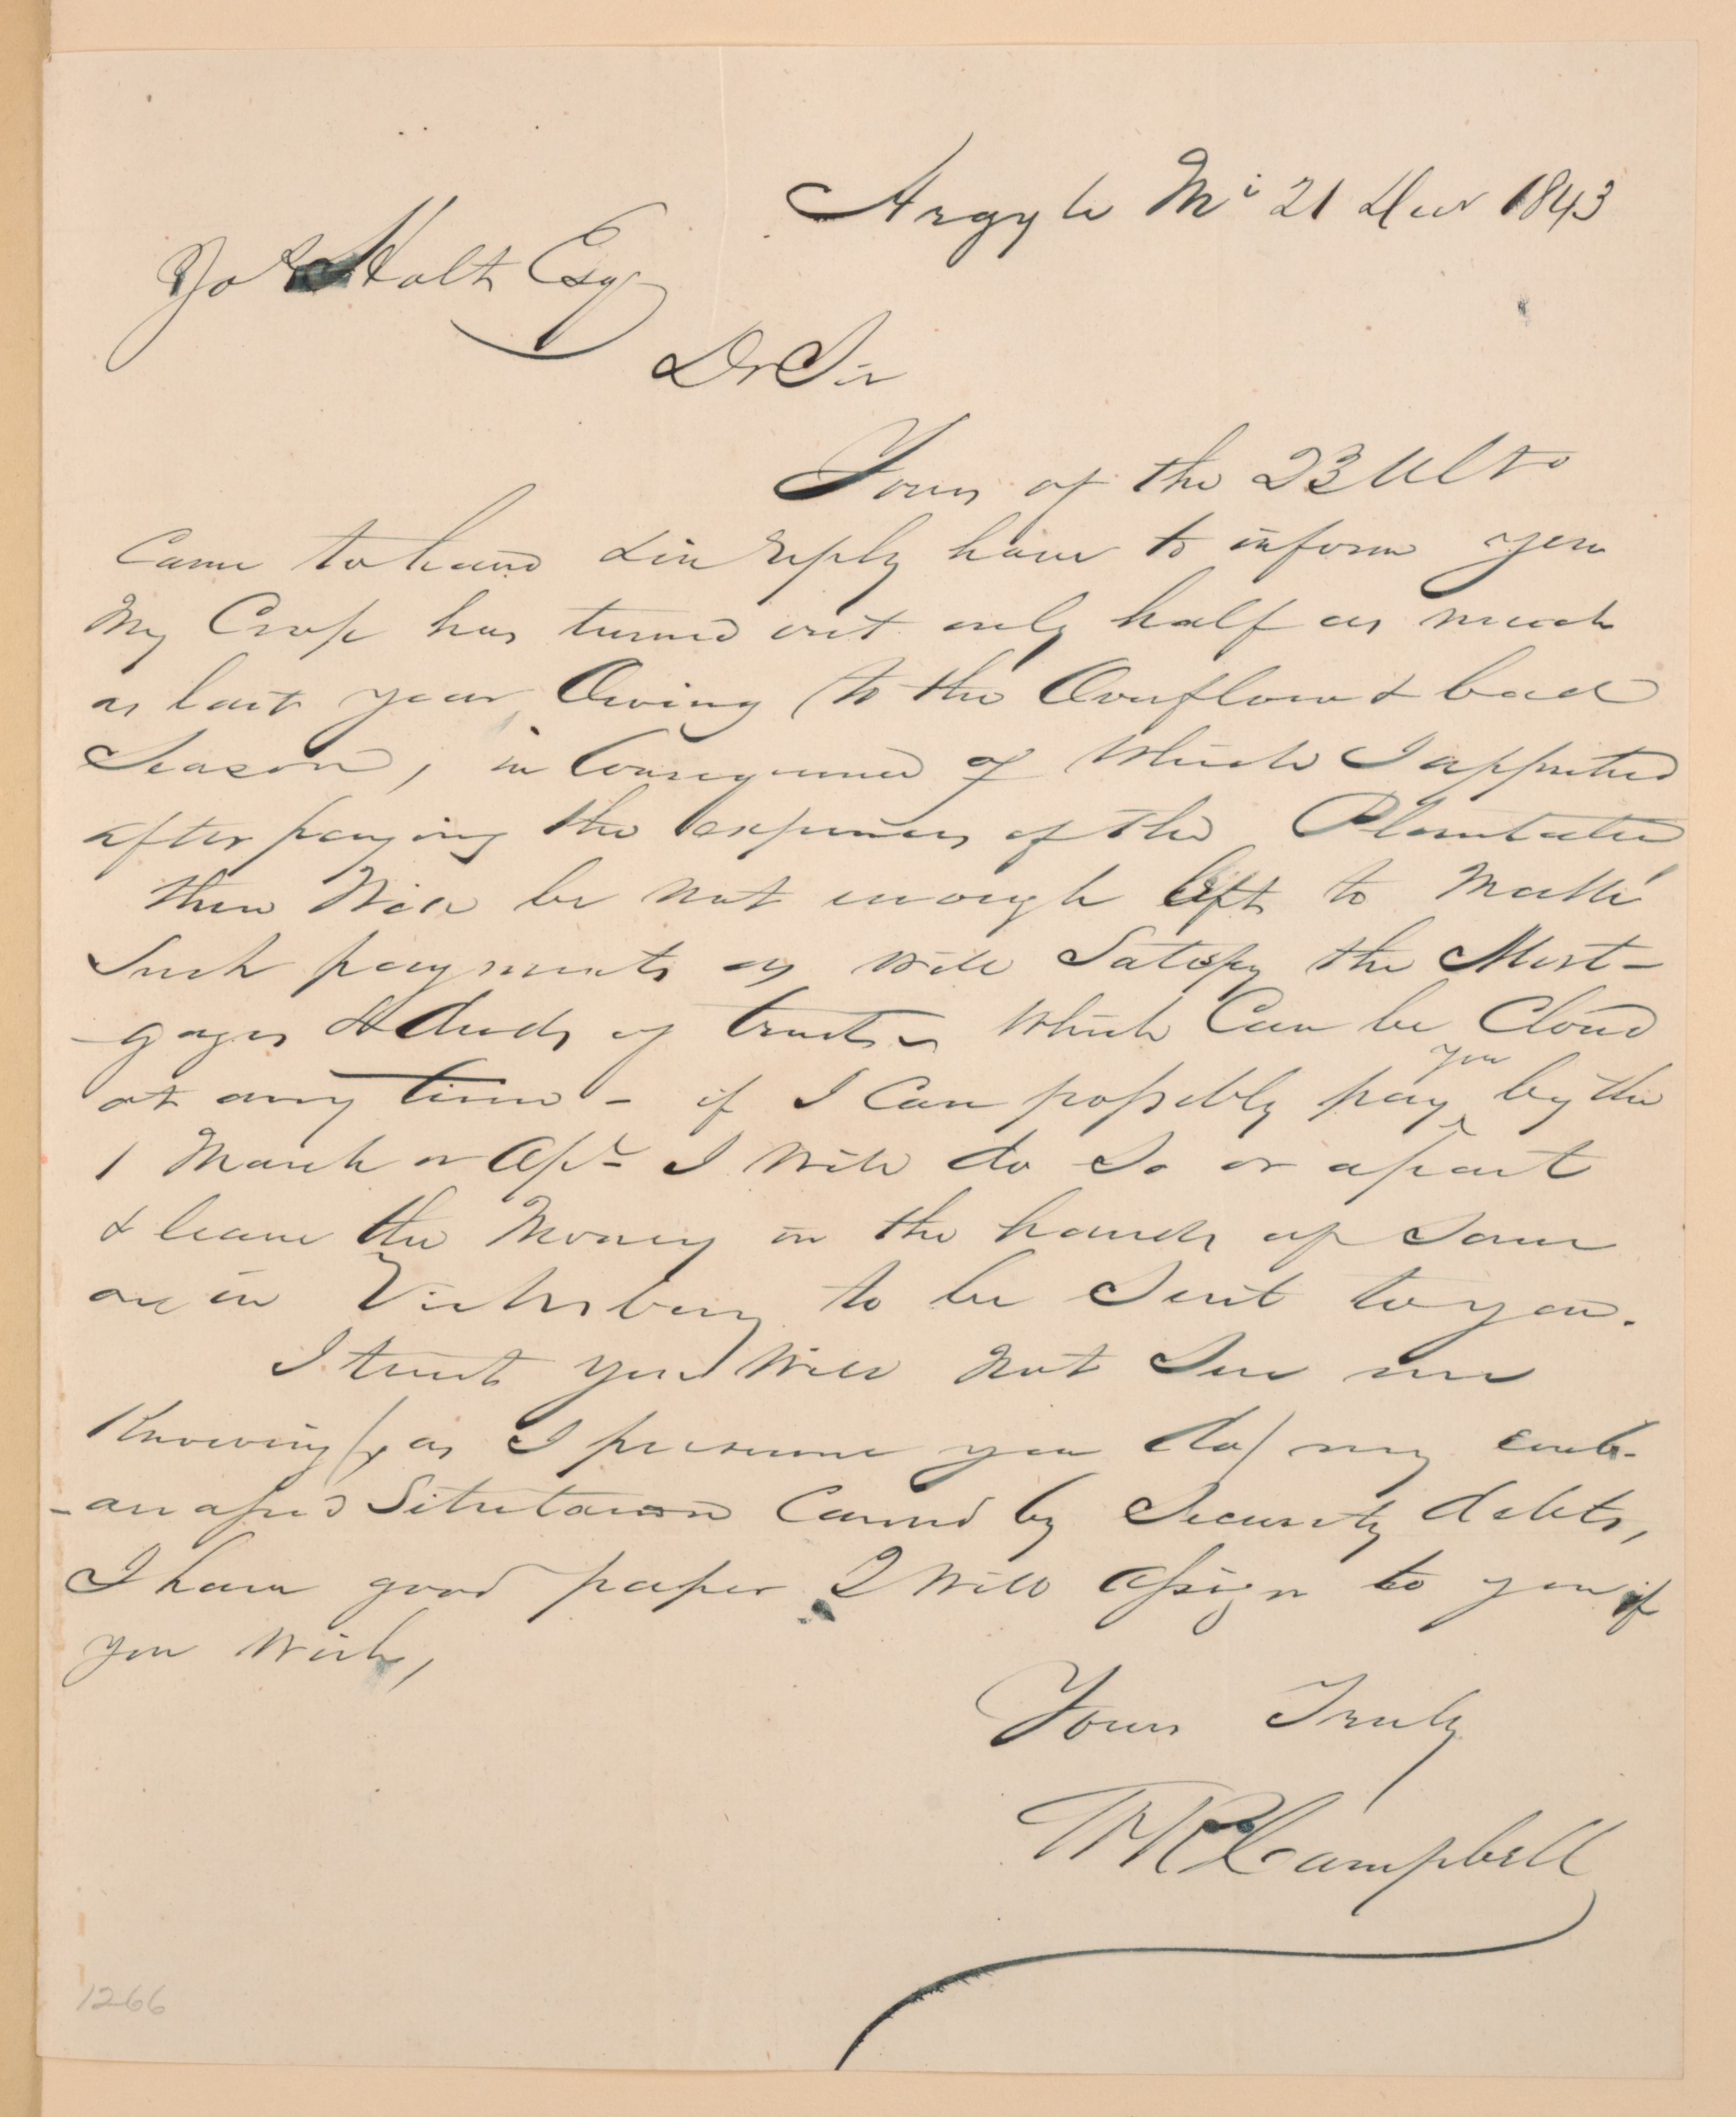 Argyle Mi 21 Decr 1843
Jo Holt Esq
Dr Sir
Yours of the 23 Ulto
Came to hand & in reply have to inform you
My Crop has turned out only half as much
as last year Owing to the Overflow & bad
Season, in Consequence of Which I
after paying the expenses of the Plantation
there Will be not enough left to Make
Such payments as will Satisfy the Mort-
-gages & deeds of trust - Which Can be Closed
at any time - if I Can possibly pay you by the
1 March or Apl I Will do So or a part
& leave the Money in the hands of Some
one in Vicksburg to be Sent to you.
I trust you Will Not Sue me
Knowing (as I presume you do) my emb-
-arrassed Situation Caused by Security debts,
I have good paper I Will assign to you if
you Wish,
Yours Truly
W R Campbell
1266